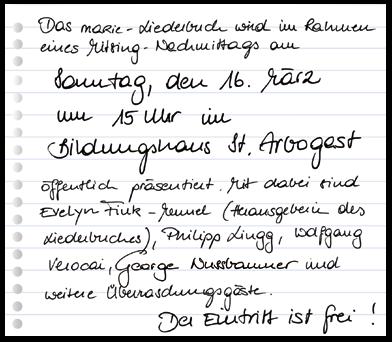 Das marie-Liederbuch wird im Rahmen
eines Mitsing-Nachmittags am
Sonntag, den 16. März
um 15 Uhr im
Bildungshaus St. Arbogast
öffentlich präsentiert. Mit dabei sind
Evelyn Fink-Mennel (Herausgeberin des
Liederbuches), Philipp Lingg, Wolfgang
Verocai, George Nussbaumer und
weitere Überraschungsgäste.
Der Eintritt ist frei!